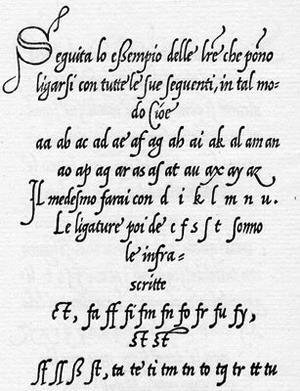 Seguita lo eſſempio delle lr̃e che põno
ligarſi con tutte le ſue ſeguenti, in tal mo-
do Cioe
aa ab ac ad ae af ag ah ai ak al am an
ao ap aq ar as aſ at au ax ay az
Il medeſmo farai con d i k l m n u.
Le ligature poi de c f s ſ t ſonno
le infra=
scritte
ct, fa ff fi fm fn fo fr fu fy,
ſt st
ſſ ſſ ß ſt, ta te ti tm tn to tq tr tt tu